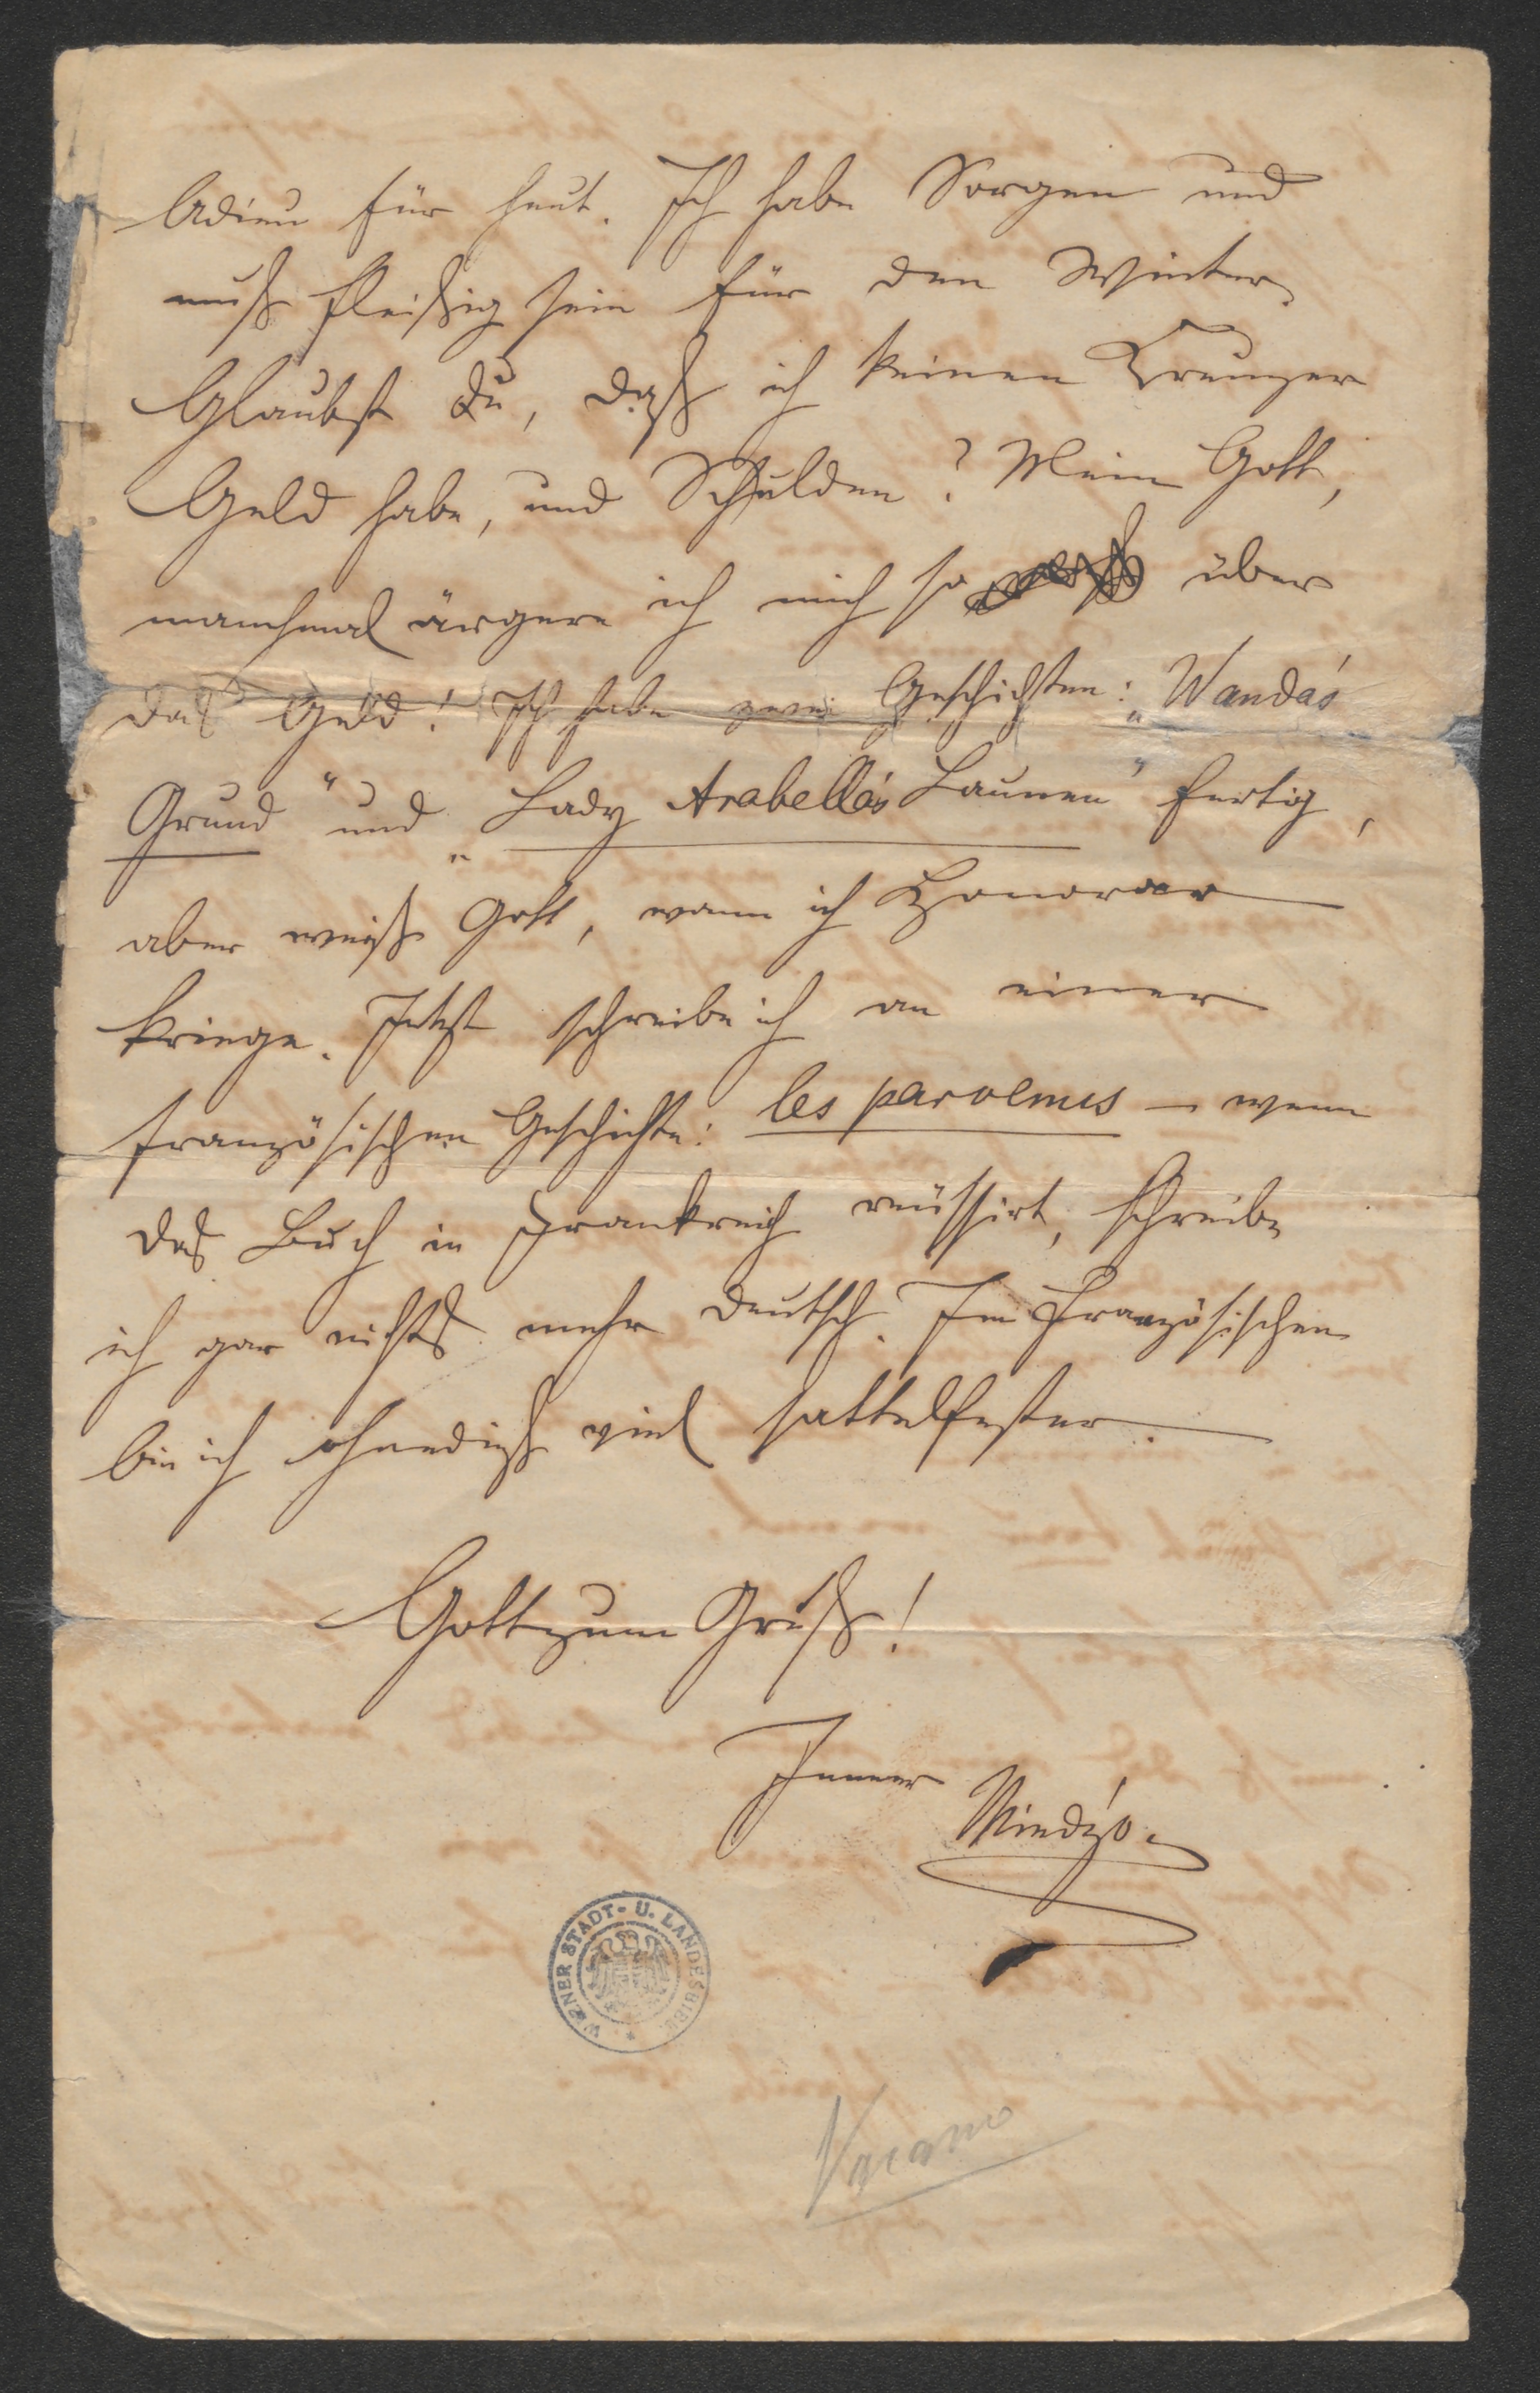 Adieu für heut. Ich habe Sorgen und
muß fleißig sein für den Winter.
Glaubst Du, daß ich keinen Kreuzer
Geld habe, und Schulden? Mein Gott,
manchmal ärgere ich mich so über
das Geld! Ich habe zwei Geschichten: „Wanda's
Grund“ und „Lady Arabella's Launen“ fertig,
aber weiß Gott, wann ich Honorar
kriege. Jetzt schreibe ich an einer
französischen Geschichte: les parvenus – wenn
das Buch in Frankreich reüssirt, schreibe
ich gar nichts mehr deutsch. Im Französischen
bin ich ohnedieß viel sattelfester.
Gott zum Gruß!
Immer
WIENER STADT- U. LANDESBIBL.
Vacano